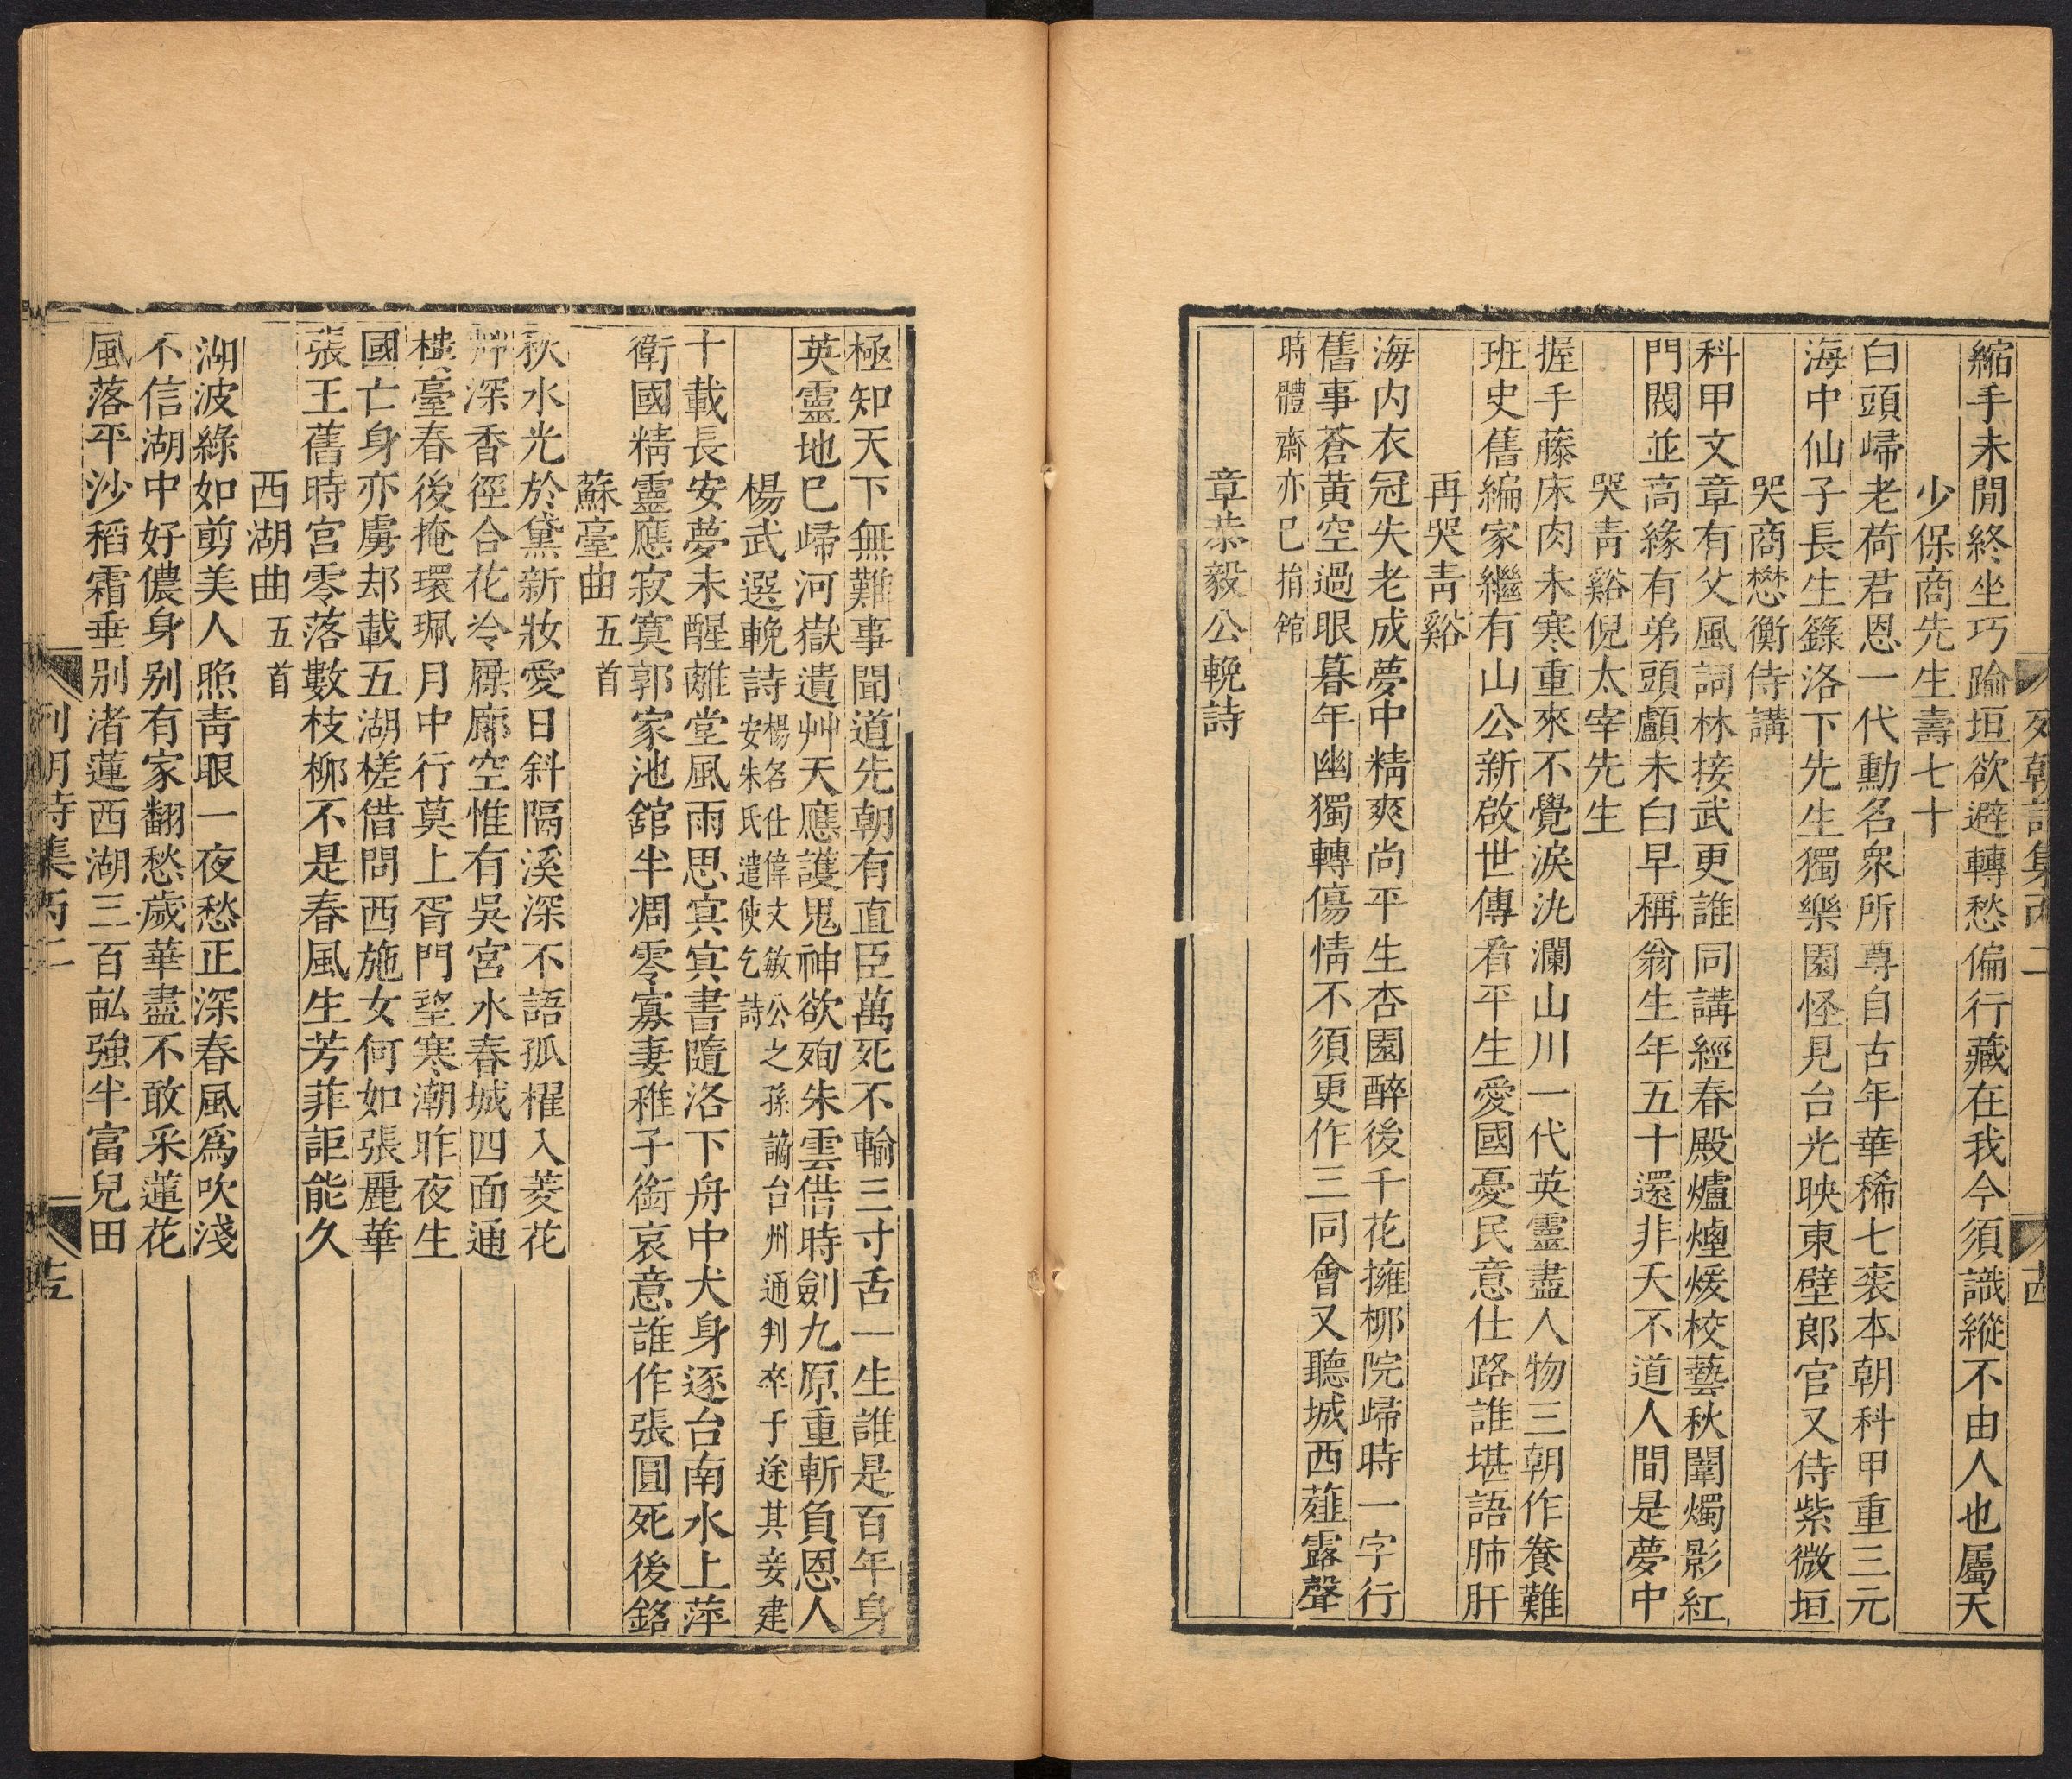 列朝詩集丙二
縮手未閒終坐巧踰垣欲避轉愁偏行藏在我今須識縱不由人也屬天
少保商先生壽七十
白頭歸老荷君恩一代勳名衆所尊自古年華稀七袠本朝科甲重三元
海中仙子長生籙洛下先生獨樂園怪見台光映東壁郎官又侍紫微垣
哭商懋衡侍講
科甲文章有父風詞林接武更誰同講經春殿爐煙煖校藝秋闈燭影紅
門閥並高緣有弟頭顱未白早稱翁生年五十還非夭不道人間是夢中
哭靑谿倪太宰先生
握手藤床肉未寒重來不覺淚汍瀾山川一代英靈盡人物三朝作養難
班史舊編家繼有山公新啟世傳看平生愛國憂民意仕路誰堪語肺肝
再哭靑谿
海内衣冠失老成夢中精爽尚平生杏園醉後千花擁柳院歸時一字行
舊事蒼黃空過眼暮年幽獨轉傷情不須更作三同會又聽城西薤露聲
時體齋亦巳捐館
章恭毅公輓詩
極知天下無難事聞道先朝有直臣萬死不輸三寸舌一生誰是百年身
英靈地巳歸河嶽遺艸天應護鬼神欲殉朱雲借時劍九原重斬負恩人
楊武選輓詩楊名仕偉文敏公之孫謫台州通判卒于途其妾建
安朱氏遣使乞詩
十載長安夢未醒離堂風雨思冥冥書隨洛下舟中犬身逐台南水上萍
衛國精靈應寂寞郭家池舘半凋零寡妻稚子銜哀意誰作張圓死後銘
蘇臺曲五首
秋水光於黛新妝愛日斜隔溪深不語孤櫂入菱花
艸深香徑合花冷屧廊空惟有吳宮水春城四面通
樓臺春後掩環珮月中行莫上胥門望寒潮昨夜生
國亡身亦虜却載五湖槎借問西施女何如張麗華
張王舊時宫零落數枝柳不是春風生芳菲詎能久
西湖曲五首
湖波綠如剪美人照靑眼一夜愁正深春風爲吹淺
不信湖中好儂身别有家翻愁歲華盡不敢采蓮花
風落平沙稻霜垂别渚蓮西湖三百畝強半富兒田
列朝詩集丙二